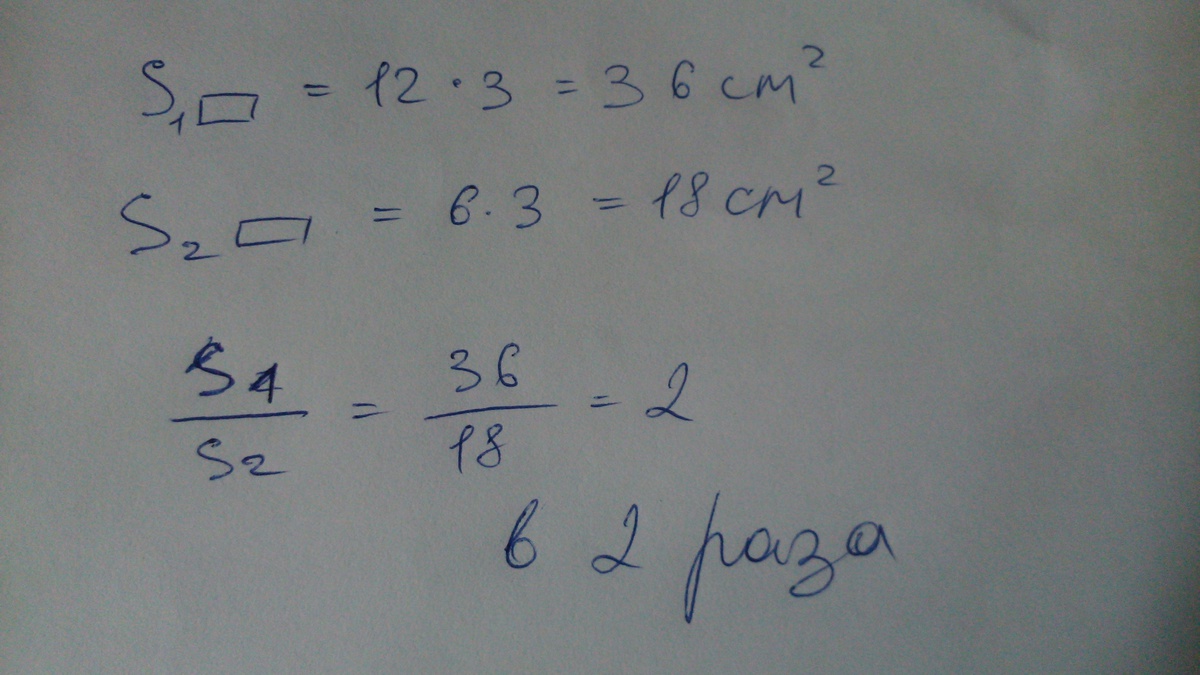 S₁▭ = 12 · 3 = 36 см²
S₂▭ = 6 · 3 = 18 см²
S1/S2 = 36/18 = 2
в 2 раза